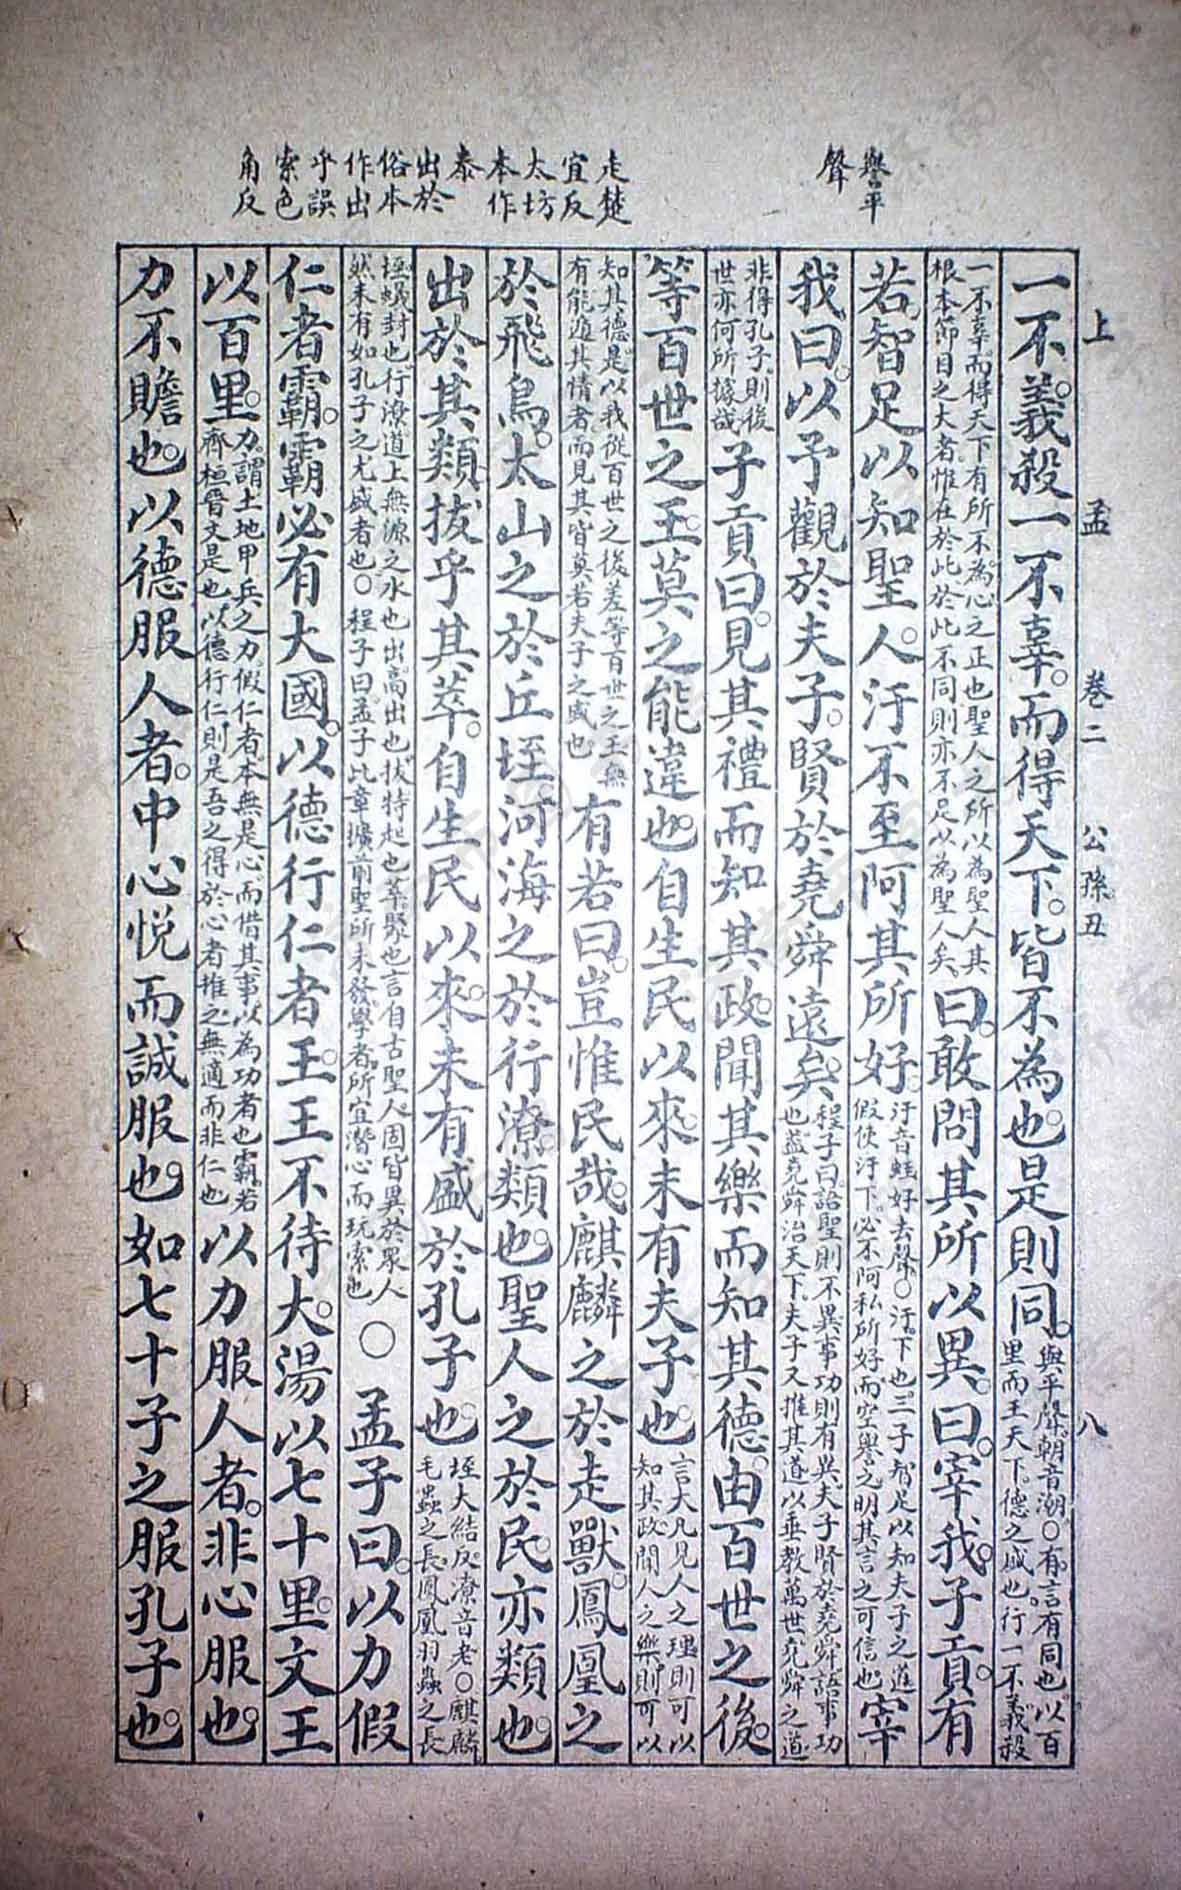 譽平
聲
走楚
宜反
太坊
本作
泰
出於
俗本
作出
乎誤
索色
角反
上孟 卷二 公孫丑 八
一不義。殺一不辜。而得天下。皆不為也。是則同。與平聲。朝音潮。○有。言有同也。以百
里而王天下。德之盛也。行一不義殺
一不辜。而得天下。有所不為。心之正也。聖人之所以為聖人。其
根本節目之大者。惟在於此。於此不同。則亦不足以為聖人矣。曰。敢問其所以異。曰。宰我。子貢。有
若。智足以知聖人。汙不至阿其所好。汙音蛙。好去聲。○汙。下也。三子智足以知夫子之道。
假使汙下。必不阿私所好。而空譽之。明其言之可信也。宰
我曰。以予觀於夫子。賢於堯舜遠矣。程子曰。語聖則不異。事功則有異。夫子賢於堯舜。語事功
也。蓋堯舜治天下。夫子又推其道以垂教萬世。堯舜之道
非得孔子。則後
世亦何所據哉。子貢曰。見其禮而知其政。聞其樂而知其德。由百世之後。
等百世之王。莫之能違也。自生民以來。未有夫子也。言大凡見人之禮。則可以
知其政。聞人之樂。則可以
知其德。是以我從百世之後。差等百世之王。無
有能遁其情者。而見其皆莫若夫子之盛也。有若曰。豈惟民哉。麒麟之於走獸。鳳凰之
於飛鳥。太山之於丘垤。河海之於行潦。類也。聖人之於民。亦類也。
出於其類。拔乎其萃。自生民以來。未有盛於孔子也。垤大結反。潦音老。○麒麟
毛蟲之長。鳳凰羽蟲之長。
垤。蟻封也。行潦。道上無源之水也。出。高出也。拔。特起也。萃。聚也。言自古聖人。固皆異於眾人。
然未有如孔子之尤盛者也。○程子曰。孟子此章。擴前聖所未發。學者所宜潛心而玩索也。○孟子曰。以力假
仁者霸。霸必有大國。以德行仁者王。王不待大。湯以七十里。文王
以百里。力。謂土地甲兵之力。假仁者。本無是心。而借其事以為功者也。霸。若
齊桓晉文是也。以德行仁。則是吾之得於心者。推之無適而非仁也。以力服人者。非心服也。
力不贍也。以德服人者。中心悅而誠服也。如七十子之服孔子也。